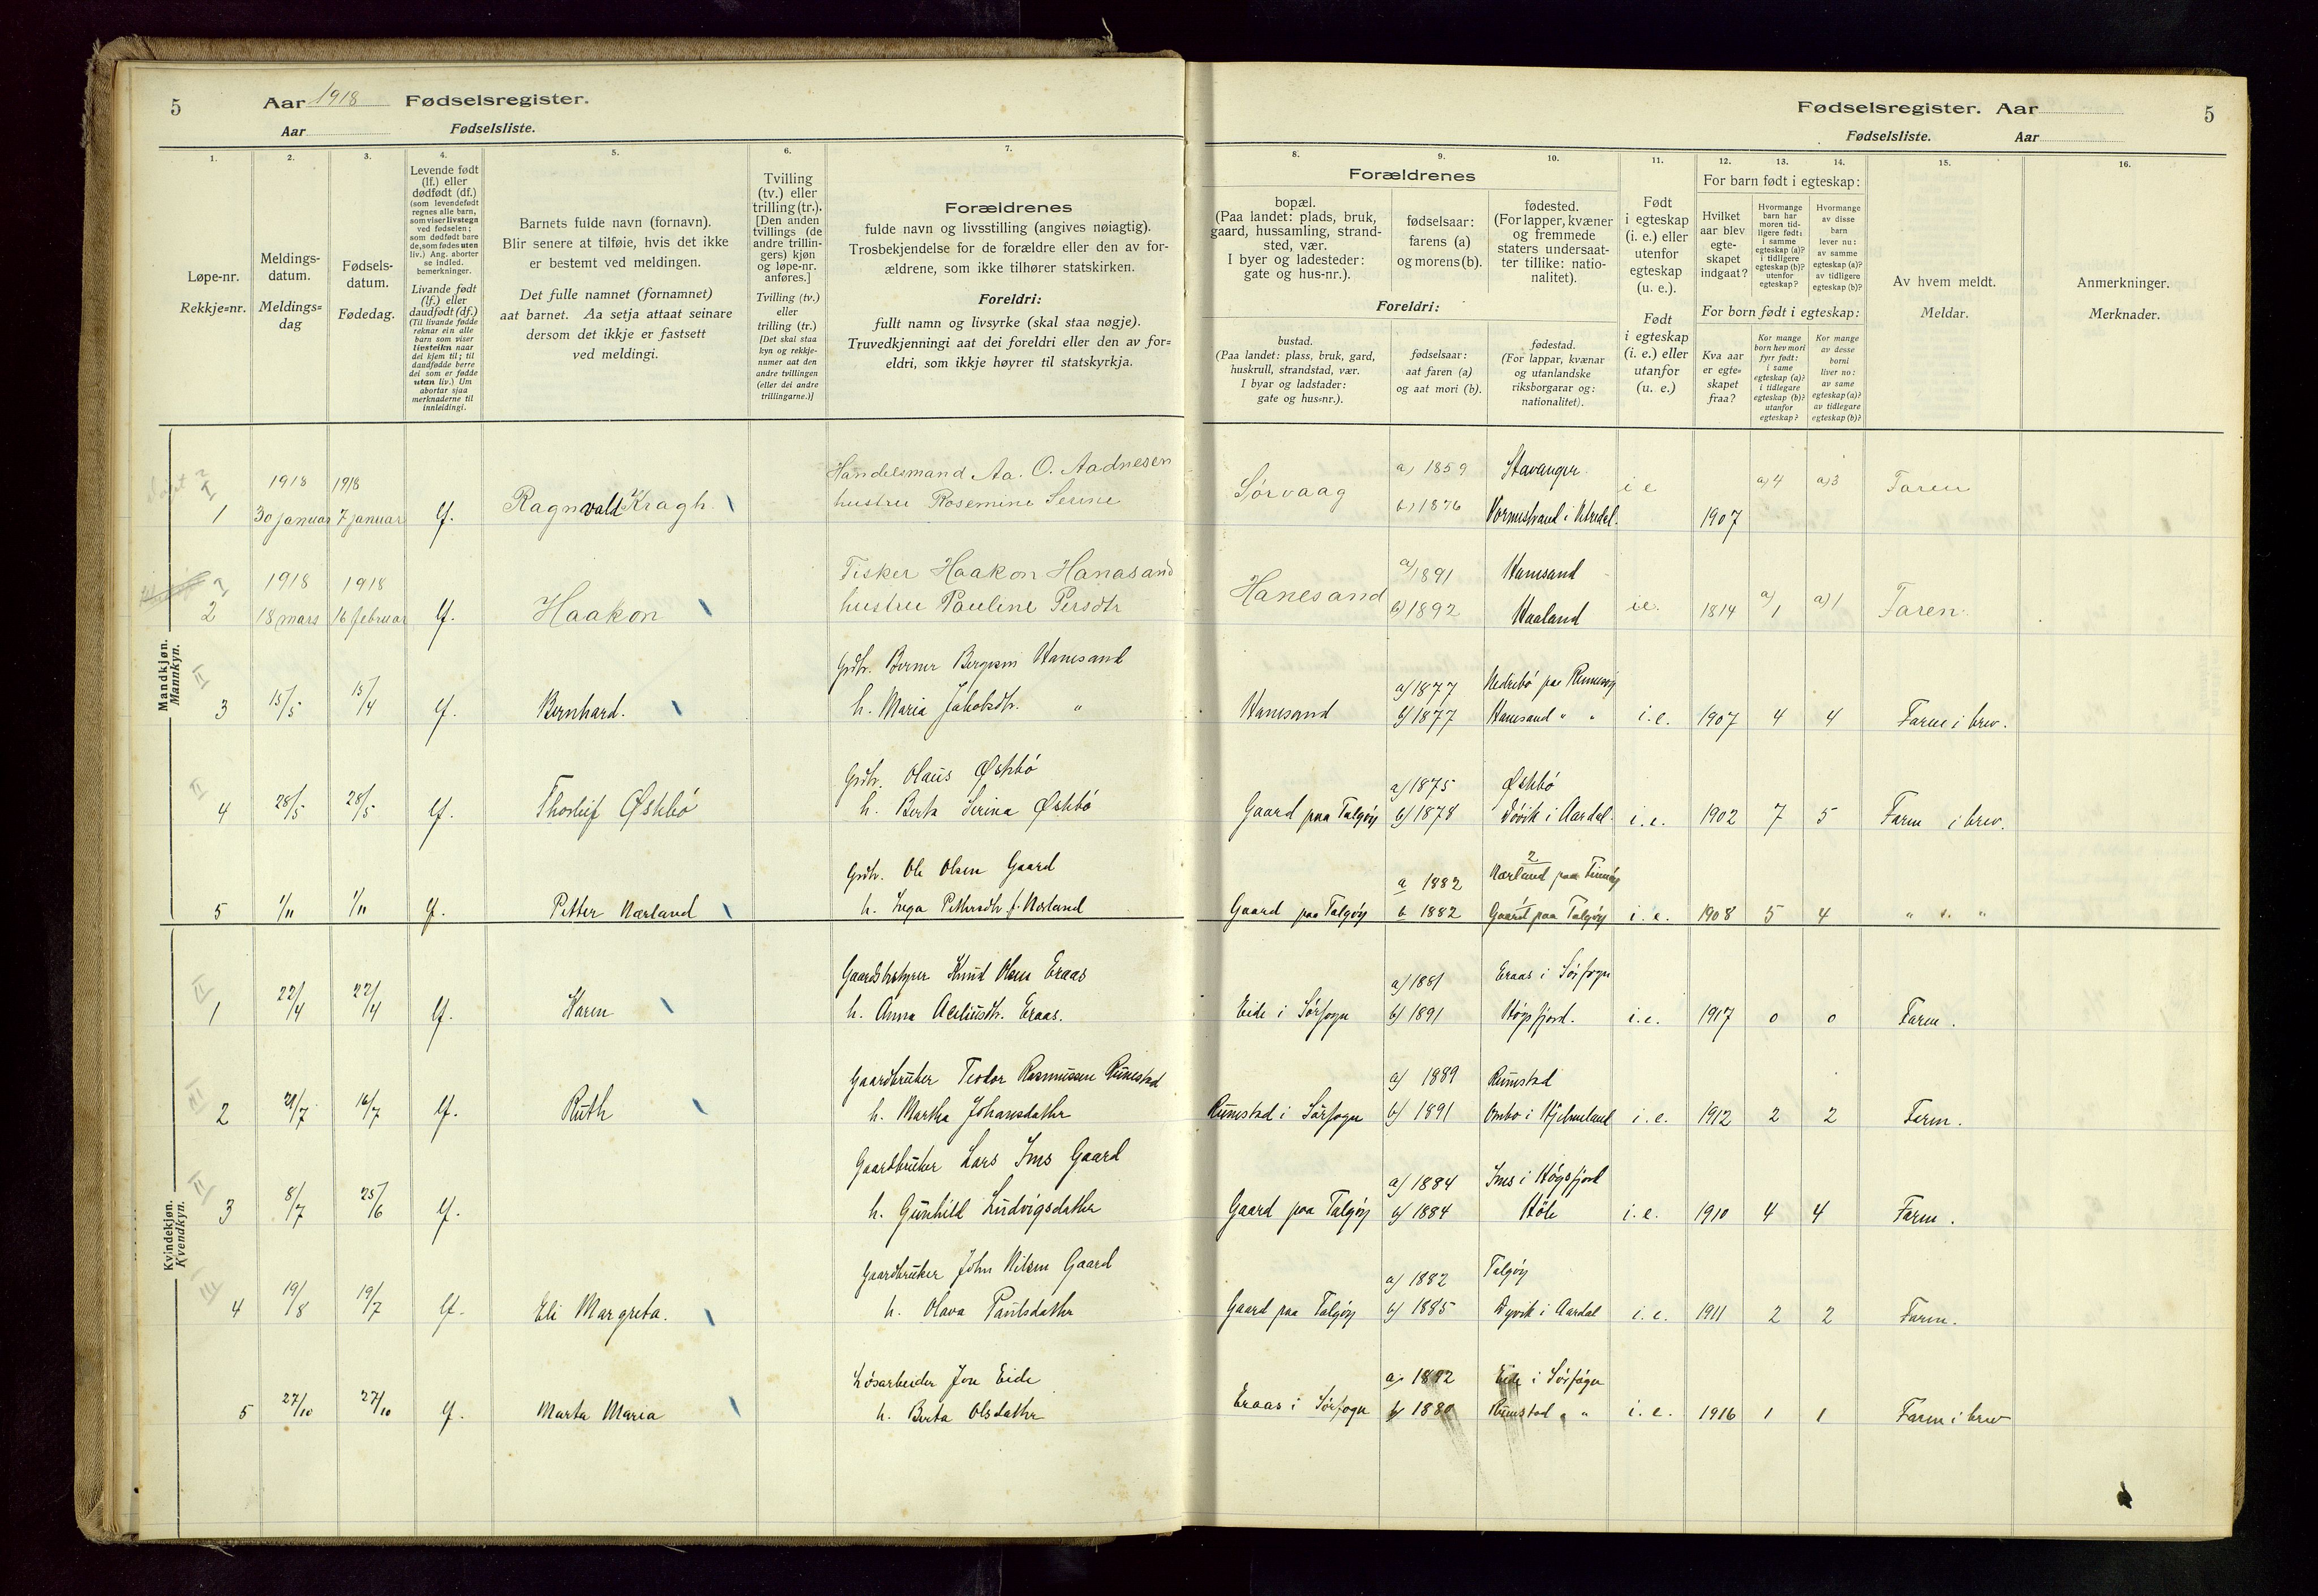 5 Aar 1918 Fødselsregister.
Aar Fødselsliste.
Fødselsregister. Aar 5
Fødselsliste. Aar
1.
Løpe-nr.
Rekkje=nr.
2.
Meldings-
datum.
Meldings=
dag
3.
Fødsels-
datum.
Fødedag.
4.
Levende født
(lf.) eller
dødfødt (df.)
(som levendefødt
regnes alle barn,
som viser livstegn
ved fødselen;
som dødfødt bare
de, som fødes uten
liv.) Ang. aborter
se indled.
bemerkninger.
Livande født
(lf.) eller
daudfødt (df.)
(Til livande fødde
reknar ein alle
barn som viser
livsteikn naar
dei kjem til; til
daudfødde berre
dei som er fødde
utan liv.) Um
abortar sjaa
merknaderne til
innleidingi.
5.
Barnets fulde navn (fornavn).
Blir senere at tilføie, hvis det ikke
er bestemt ved meldingen.
Det fulle namnet (fornamnet)
aat barnet. Aa setja attaat seinare
dersom det ikkje er fastsett
ved meldingi.
6.
Tvilling
(tv.) eller
trilling (tr.).
[Den anden
tvillings (de
andre trillin-
gers) kjøn
og løpe-nr.
anføres.]
Tvilling (tv.)
eller
trilling (tr.)
[Det skal staa
kyn og rekkje-
numer aat den
andre tvillingen
(eller dei andre
trillingarne.)]
7.
Forældrenes
fulde navn og livsstilling (angives nøiagtig).
Trosbekjendelse for de forældre eller den av for-
ældrene, som ikke tilhører statskirken.
Foreldri:
fullt namn og livsyrke (skal staa nøgje).
Truvedkjenningi aat dei foreldri eller den av for=
eldri, som ikkje høyrer til statskyrkja.
8.
Forældrenes
bopæl.
(Paa landet: plads, bruk,
gaard, hussamling, strand-
sted, vær.
I byer og ladesteder:
gate og hus-nr.).
Foreldri:
bustad.
(Paa landet: plass, bruk, gard,
huskrull, strandstad, vær.
I byar og ladstader:
gate og hus=nr.).
9.
fødselsaar:
farens (a)
og morens (b).
fødselsaar:
aat faren (a)
og aat mori (b).
10.
fødested.
(For lapper, kvæner
og fremmede
staters undersaat-
ter tillike: natio-
nalitet).
fødestad.
(For lappar, kvænar
og utanlandske
riksborgarar og:
nationalitet).
11.
Født
i egteskap
(i. e.) eller
utenfor
egteskap
(u. e.).
Født
i egteskap
(i. e.) eller
utanfor
(u. e.)
12. 13. 14.
For barn født i egteskap:
Hvilket
aar blev
egte-
skapet
indgaat?
Hvormange
barn har
moren tid-
ligere født:
i samme
egteskap (a)?
i tidligere
egteskap (b)?
utenfor
egteskap?
Hvormange
av disse
barn
lever nu:
av samme
egteskap (a)?
av tidligere
egteskap (b)?
For born født i egteskap:
Kva aar
er egte=
skapet
fraa?
Kor mange
born hev mori
fyrr født:
i same
egteskap (a)?
i tidlegare
egteskap (b)?
utanfor
egteskap?
Kor mange
av desse
borni
liver no:
av same
egteskap (a)?
av tidlegare
egteskap (b)?
15.
Av hvem meldt.
Meldar.
16.
Anmerkninger.
Merknader.
Mandkjøn.
Mannkyn.
I
1 1918 30 januar 1918 7 januar lf. Ragnvald Kragh.
Handelsmand Aa. O. Aadnesen
hustru Rosemine Serine
Sørvaag a) 1859 Stavanger
b) 1876 Vormestrand i i e 1907 a) 4 a) 3 Faren
I
2 1918 18 mars 1918 16 februar lf. Haakon
Fisker Haakon Hanasand
hustru Pauline Persdtr
Hanesand a) 1891 Hanesand
b) 1892 Haaland i e. 1814 a) 1 a) 1 Faren.
II
3 15/5 15/4 lf. Bernhard.
Grdbr. Berner Bergesen Hanesand
h. Maria Jakobsdtr. "
Hanesand a) 1877 Nedrebö paa Rennesöy
b) 1877 Hanesand " " i. e. 1907 4 4 Faren i brev.
II
4 28/5 28/5 lf. Thorleif Østebö
Grdbr. Olaus Østebö
h. Berta Serina Østebö
Gaard paa Talgöy a) 1875 Østebö
b) 1878 Dövik i Aardal. i. e. 1902 7 5 Faren i brev.
5 1/11 1/11 lf. Petter Nærland
Grdbr. Ole Olsen Gaard
h. Inga Pettersdtr f. Nærland
Gaard paa Talgöy a 1882 2 Nærland paa Finnöy
b 1882 1 Gaard paa Talgöy i. e. 1908 5 4 " " "
Kvindekjøn.
Kvendkyn.
II
1 22/4 22/4 lf. Karen
Gaardbestyrer Knud Olsen Eraas
h. Anna Aeliusdtr. Eraas.
Eide i Sörsogn a) 1881 Eraas i Sörsogn
b) 1891 Högsfjord. i. e. 1917 0 0 Faren.
III
2 21/7 16/7 lf. Ruth
Gaardbruker Teodor Rasmussen Rimestad
h. Martha Johansdatter
Rimestad i Sörsogn a) 1889 Rimestad
b) 1891 Ombo i Hjelmeland i. e. 1912 2 2 Faren.
II
3 8/7 25/6 lf.
Gaardbruker Lars Ims Gaard
h. Gunhild Ludvigsdatter
Gaard paa Talgöy a) 1884 Ims i Högsfjord
b) 1884 Höle i. e. 1910 4 4 Faren.
III
4 19/8 19/7 lf. Eli Margreta.
Gaardbruker John Nilsen Gaard
h. Olava Paulsdatter
Gaard paa Talgöy a) 1882 Talgöy
b) 1885 Dyvik i Aardal i. e. 1911 2 2 Faren.
5 27/10 27/10 lf. Marta Maria
Lösarbeider Jon Eide
h. Berta Olsdatter
Eraas i Sörsogn a) 1882 Eide i Sörsogn
b) 1880 Rimestad " " i. e. 1916 1 1 Faren i brev